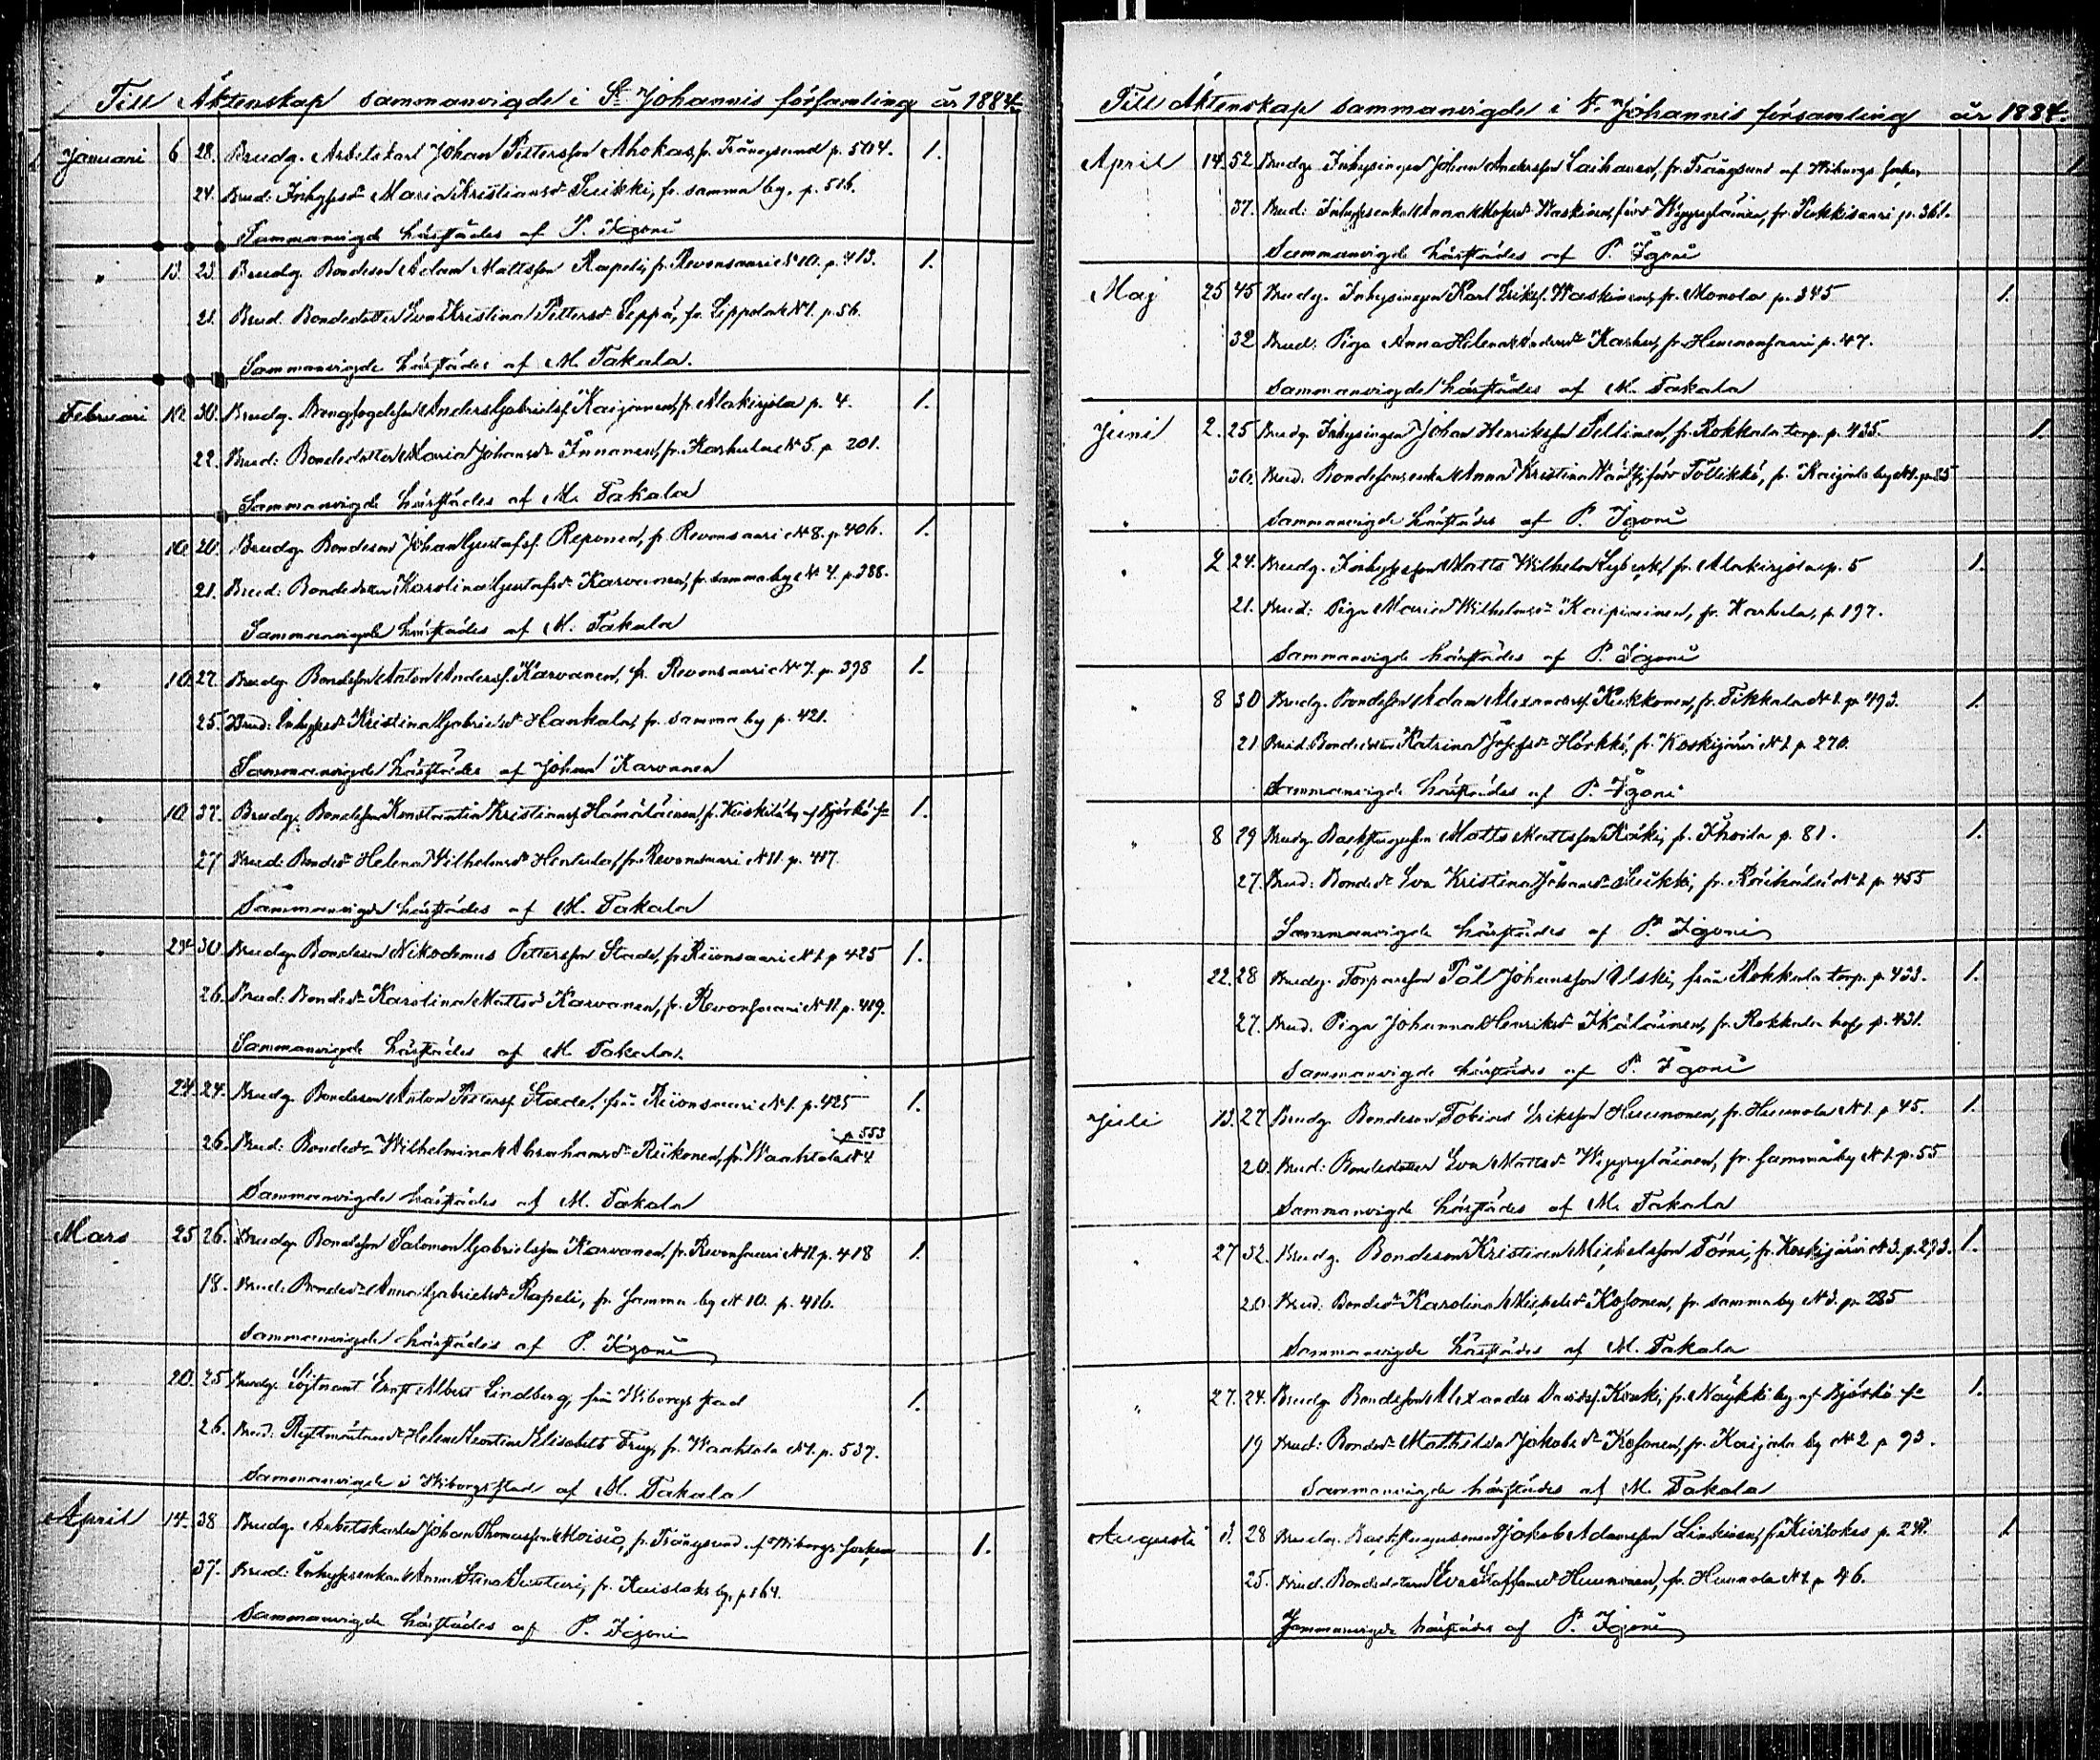 Till Äktenskap sammanvigde i St Johannis församling år 1884.
Januari 6 28. Brudg. Arbetskarl Johan Pettersson Ahokas, fr. Trångsund p. 504. 1.
24. Brud: Inhysesdr Maria Kristiansdr Peikki, fr. samma by. p. 516.
Sammanvigde härstädes af P. Igoni
" 13. 23. Brudg. Bondeson Adam Mattsson Rapeli, fr. Revonsaari № 10. p. 413. 1.
21. Brud. Bondedotter Eva Kristina Pettersdr Seppä, fr. Seppola № 1. p. 56.
Sammanvigde härstädes af M. Takala.
Februari 10. 30. Brudg. Anders Gabrielsf. Kaijanen, fr. Alakirjola p. 4. 1.
22. Brud: Bondedotter Maria Johansdr Innanen, fr. Karhula № 5. p. 201.
Sammanvigde härstädes af M. Takala
" 10. 20. Brudg. Bondeson Johan Gustafsf. Reponen, fr. Revonsaari № 8. p. 406. 1.
21. Brud: Bondedotter Karolina Gustafsdr Karvanen, fr. samma by № 4. p. 388.
Sammanvigde härstädes af M. Takala
" 10. 27. Brudg. Bondeson Anton Andersf. Karvanen, fr. Revonsaari № 7. p. 398 1.
25. Brud: Inhysesdr Kristina Gabrielsdr Hankala, fr. samma by p. 421.
Sammanvigde härstädes af Johan Karvanen
" 10. 37. Brudg. Bondeson Konstantin Kristiansf. Hämäläinen, fr. by af Björkö fg 1.
27 Brud: Bondedr Helena Wilhelmsdr fr. Revonsaari № 11. p. 417.
Sammanvigde härstädes af M. Takala
" 24. 30. Brudg. Bondeson Nikodemus Pettersson Stade, fr. Revonsaari № 1. p. 425 1.
26. Brud: Bondedr Karolina Mattsdr Karvanen, fr. Revonsaari № 11. p. 419.
Sammanvigde härstädes af M. Takala.
24. 24. Brudg. Bondeson Anton Pettersf. Stade, från Revonsaari № 1. p. 425 1.
p. 553
26. Brud: Bondedr Wilhelmina Abrahamsdr Reikonen, fr. Waahtola № 4
Sammanvigde härstädes af M. Takala
Mars 25 26. Brudg. Bondeson Salomon Gabrielsson Karvanen, fr. Revonsaari № 11. p. 418 1.
18. Brud: Bondedr Anna Gabrielsdr Rapeli, fr. samma by № 10. p. 416.
Sammanvigde härstädes af P. Igoni
" 20. 25 Brudg. Löjtnant Ernst Albert Lindberg, från Wiborgs stad 1.
26. Brud. Ryttmästaredr Helene Leontine Elisabeth Frey, fr. Waahtola № 1. p. 537.
Sammanvigde i Wiborgs stad af M. Takala
April 14. 38 Brudg. Arbetskarlen Johan Thomasson Moisio, fr. Trångsund af Wiborgs 1.
37. Brud: Inhysesenkan Anna Stina fr. by, p. 164.
Sammanvigde härstädes af P. Igoni
Till Äktenskap sammanvigde i St. Johannis församling år 1884.
April 14. 52 Brudg. Inhysingen Johan Andersson Laihanen, fr. Trångsund af Wiborgs 1
37. Brud: Inhysesenkan Anna Waskinen, född Wepsäläinen, fr. Pukkisaari p. 361.
Sammanvigde härstädes af P. Igoni
Maj 25 45 Brudg. Inhysingen Karl Eriksf. Waskinen, fr. Monola p. 345 1.
32 Brud. Piga Anna Helena Andersdr Karhu, fr. p. 47.
Sammanvigde härstädes af M. Takala
Juni 2. 25 Brudg. Inhysingen Johan Henriksson Pellinen, fr. Rokkala torp. p. 435. 1.
36. Brud. Bondesonsenkan Anna Kristina född Töllikkö, fr. Kaijala by № 1. p. 85
Sammanvigde härstädes af P. Igoni
" 2 24. Brudg. Inhysesson Matts Wilhelm fr. Alakirjola p. 5 1.
21. Brud: Piga Maria Wilhelmsdr Kaipiainen, fr. Karhula, p. 197.
Sammanvigde härstädes af P. Igoni
" 8 30 Brudg. Bondeson Adam Alexandersf. Kukkonen, fr. Tikkala № 1. p. 493. 1.
21 Brud. Bondedotter Katrina Josefsdr Hörkkö, fr. Koskijärvi № 1. p. 270.
Sammanvigde härstädes af P. Igoni
" 8 29 Brudg. Matts Mattsson Käki, fr. Ihoila p. 81. 1.
27. Brud: Bondedr Eva Kristina Johansdr Peikki, fr. № 1. p. 455
Sammanvigde härstädes af P. Igoni
" 22. 28 Brudg. Torparson Pål Johansson Ulski, från Rokkala torp. p. 433. 1.
27. Brud. Piga Johanna Henriksdr Ikäläinen, fr. Rokkala hof, p. 431.
Sammanvigde härstädes af P. Igoni
Juli 13. 27 Brudg. Bondeson Tobias Eriksson Hunnonen, fr. Hunnola № 1. p. 45. 1.
20. Brud: Bondedotter Eva Mattsdr Wepsäläinen, fr. samma by № 1. p. 55
Sammanvigde härstädes af M. Takala
" 27 32. Brudg. Bondeson Kristian Michelsson Törni, fr. Koskijärvi № 3. p. 293. 1.
20. Brud. Bondedr Karolina Michelsdr Kosonen, fr. samma by № 3. p. 285
Sammanvigde härstädes af M. Takala
" 27. 24. Brudg. Bondeson Alexander Davidsf. Koski, fr. Näykki by af Björkö fg 1.
19 Brud: Bondedr Mathilda Jakobsdr Kosonen, fr. Kaijala by № 2 p. 93.
Sammanvigde härstädes af M. Takala
Augusti 3. 28 Brudg. Jakob Adamsson Linkinen, fr. Kirvitokes p. 1
25. Brud. Bondedotter Eva Staffansdr Hunnonen, fr. Hunnola № 1. p. 46.
Sammanvigde härstädes af P. Igoni